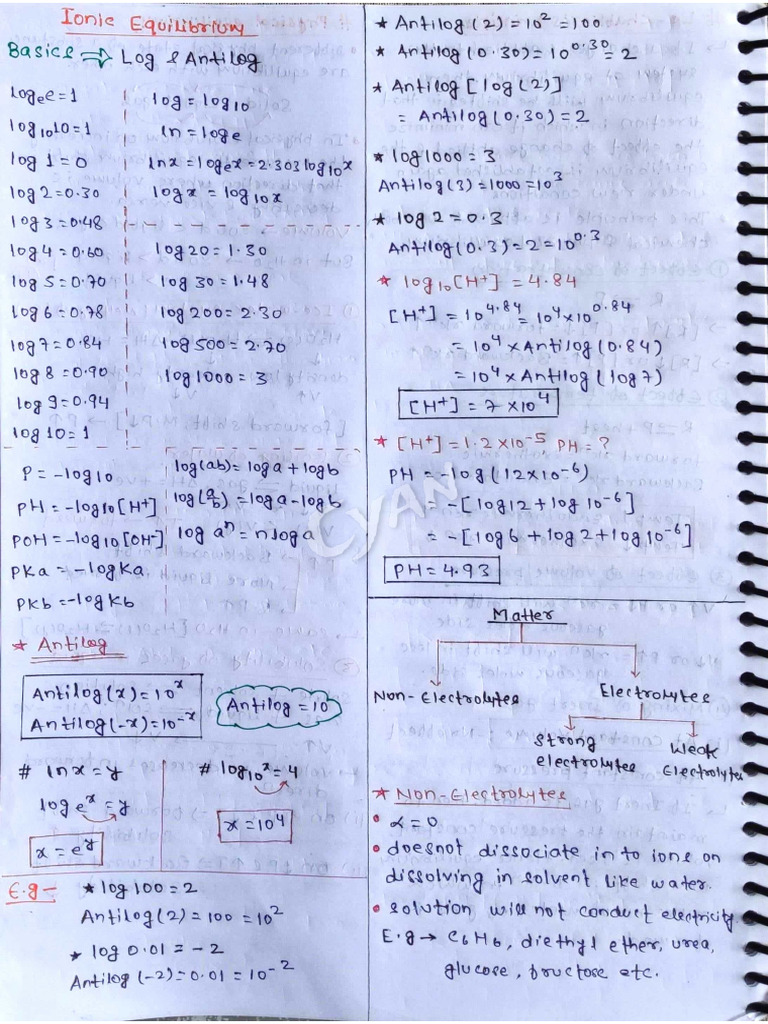 Ionic Equilibrium
Basics ⇒ Log & Antilog
logₑe=1
log₁₀10=1
log 1=0
log 2=0.30
log 3=0.48
log 4=0.60
log 5=0.70
log 6=0.78
log 7=0.84
log 8=0.90
log 9=0.94
log 10=1
log=log₁₀
ln=logₑ
lnx=logₑx=2.303log₁₀x
logx=log₁₀x
log20=1.30
log 30=1.48
log 200=2.30
log 500=2.70
log 1000=3
P=-log₁₀
PH=-log₁₀[H⁺]
POH=-log₁₀[OH⁻]
PKa=-logKa
PKb=-logKb
log(ab)=loga+logb
log(a/b)=loga-logb
log aⁿ=nloga
* Antilog
Antilog(x)=10ˣ
Antilog(-x)=10⁻ˣ
Antilog=10
# lnx=y
logₑx=y
x=eʸ
# log₁₀x=4
x=10⁴
E.g- * log 100=2
Antilog(2)=100=10²
* log 0.01=-2
Antilog(-2)=0.01=10⁻²
* Antilog(2)=10²=100
* Antilog(0.30)=10⁰·³⁰=2
* Antilog[log(2)]
= Antilog(0.30)=2
* log1000=3
Antilog(3)=1000=10³
* log 2=0.3
Antilog(0.3)=2=10⁰·³
* log₁₀[H⁺]=4.84
[H⁺]=10⁴·⁸⁴=10⁴x10⁰·⁸⁴
=10⁴xAntilog(0.84)
=10⁴xAntilog(log7)
[H⁺]=7x10⁴
* [H⁺]=1.2x10⁻⁵ PH=?
PH=-log(12x10⁻⁶)
=-[log12+log10⁻⁶]
=-[log6+log2+log10⁻⁶]
PH=4.93
Matter
Non-Electrolytes
Electrolytes
Strong
electrolytes
Weak
Electrolytes
* Non-Electrolytes
• α=0
• doesnot dissociate in to ions on
dissolving in solvent like water.
• solution will not conduct electricity.
E.g→ C₆H₆, diethyl ether, urea,
glucose, fructose etc.
CYAN